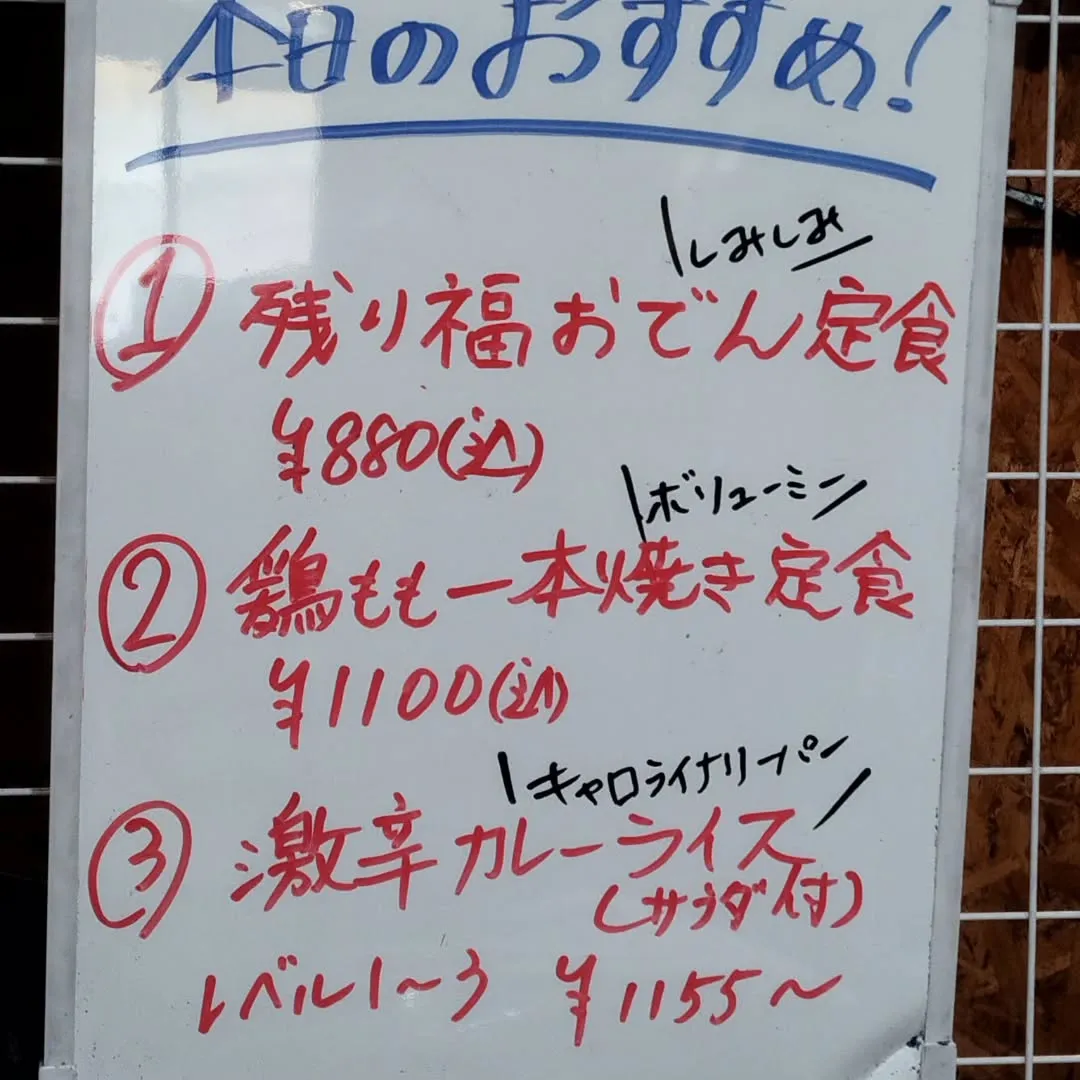 本日のおすすめ!
しみしみ
① 残り福おでん定食
¥880(込)
ボリューミー
② 鶏もも一本焼き定食
¥1100(込)
キャロライナリーパー
③ 激辛カレーライス
(サラダ付)
レベル1〜3 ¥1155〜